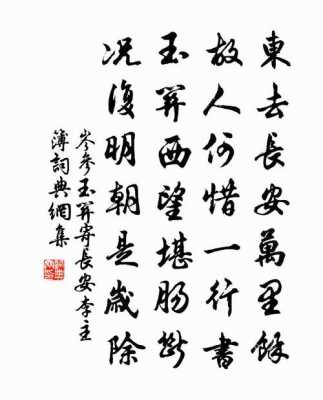 東去長安萬里餘
故人何惜一行書
玉關西望堪腸斷
况復明朝是歲除
岑參玉關寄長安李主
簿詞典網集